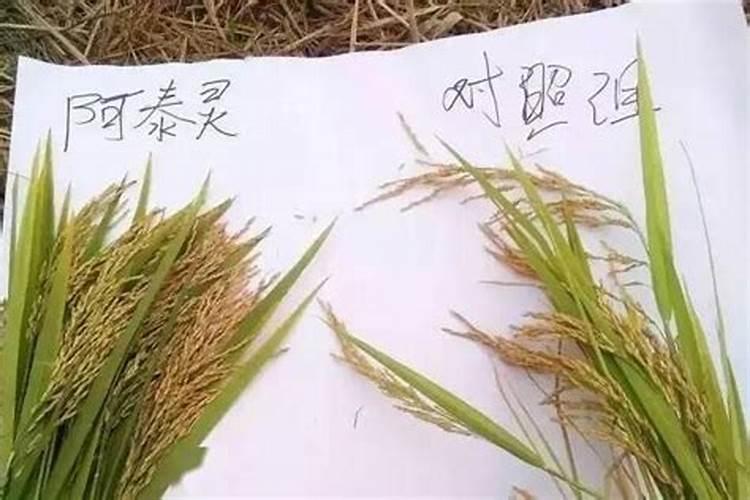 阿泰灵
对照组